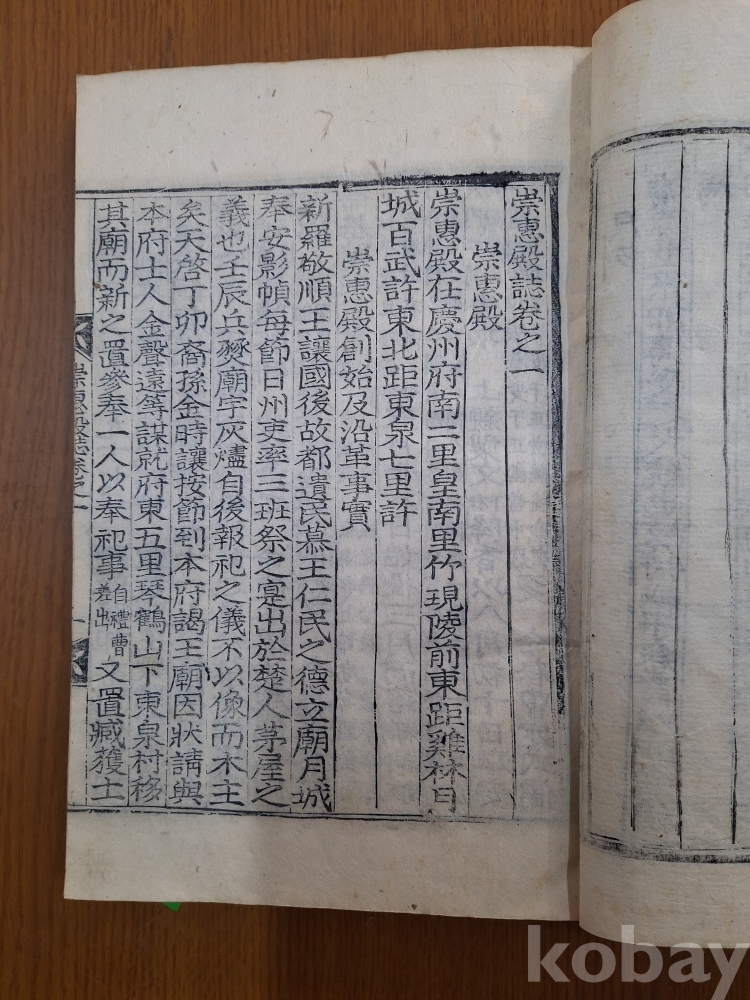 崇惠殿誌卷之一
崇惠殿
崇惠殿在慶州府南二里皇南里竹現陵前東距雞林月
城百武許東北距東泉七里許
崇惠殿創始及沿革事實
新羅敬順王讓國後故都遺民慕王仁民之德立廟月城
奉安影幀每節日州吏率三班祭之寔出於楚人茅屋之
義也壬辰兵燹廟宇灰燼自後報祀之儀不以像而木主
矣天啓丁卯裔孫金時讓按節到本府謁王廟因狀請與
本府士人金聲遠等謀就府東五里琴鶴山下東泉村移
其廟而新之置參奉一人以奉祀事自禮曹差出又置臧獲土
崇惠殿誌卷之一
kobay